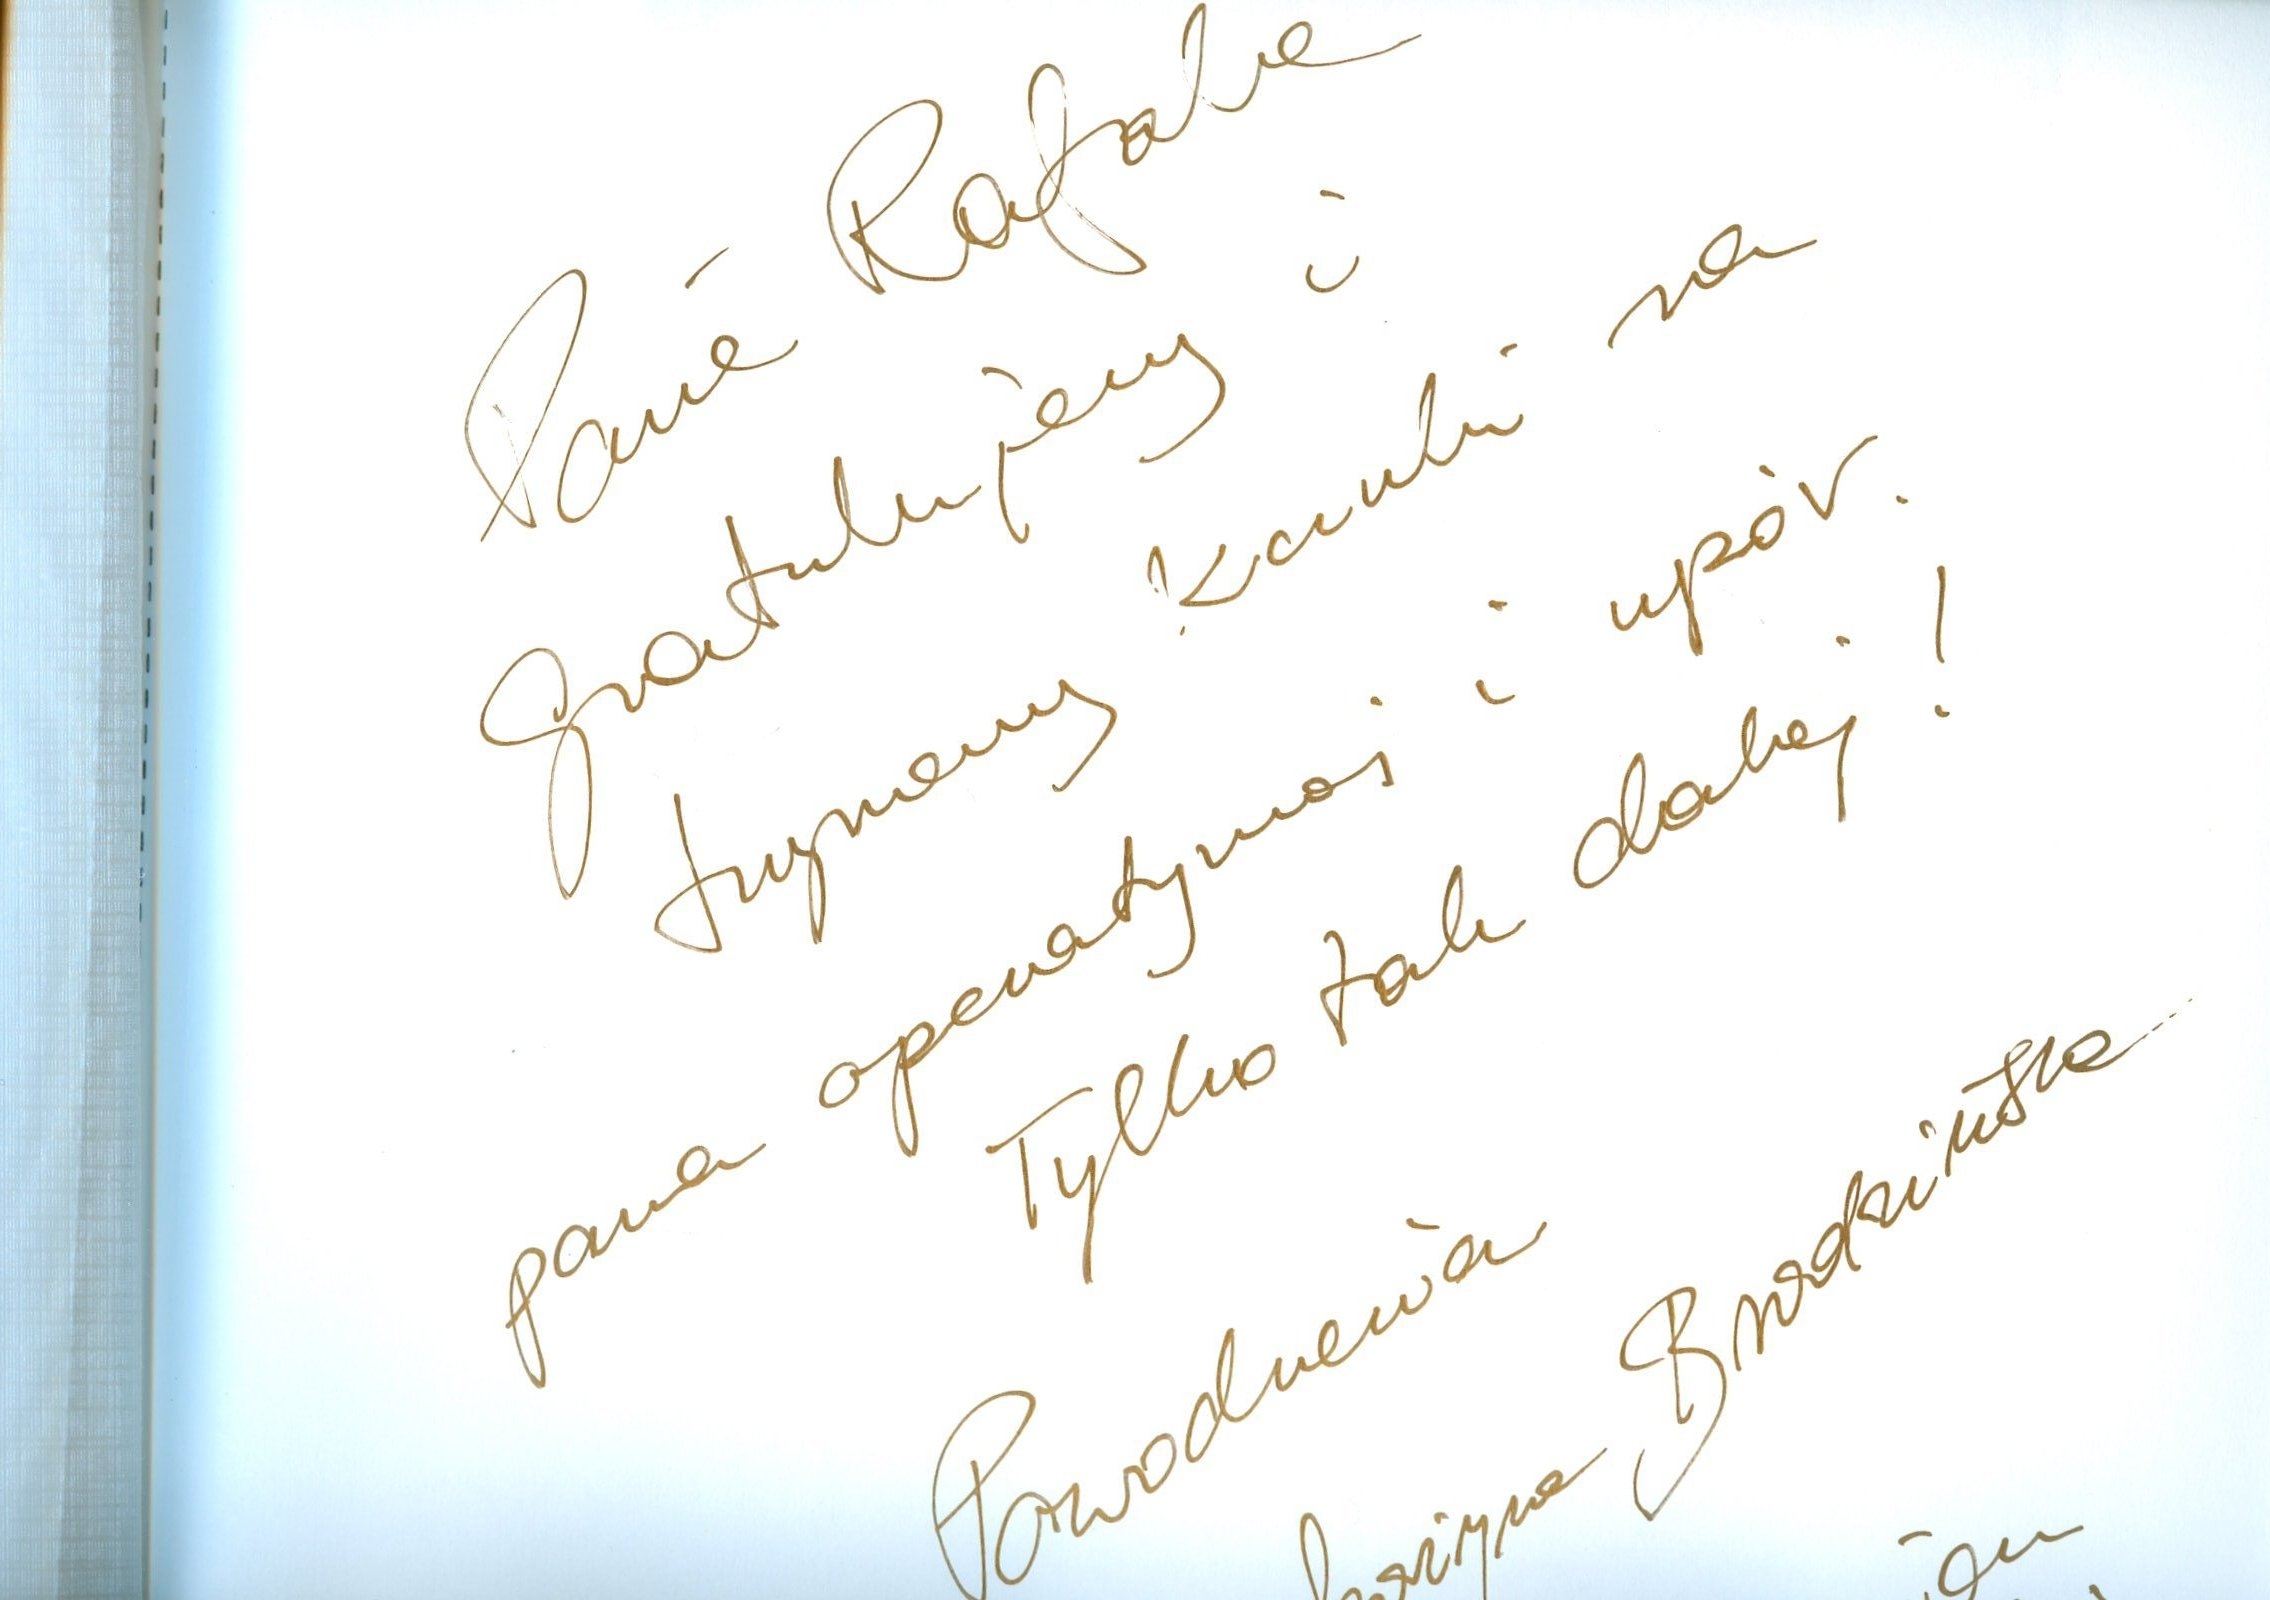 Panie Rafale
Gratulujemy i
trzymamy kciuki za
pana operatywność i upór.
Tylko tak dalej!
Powodzenia
Brodzińska